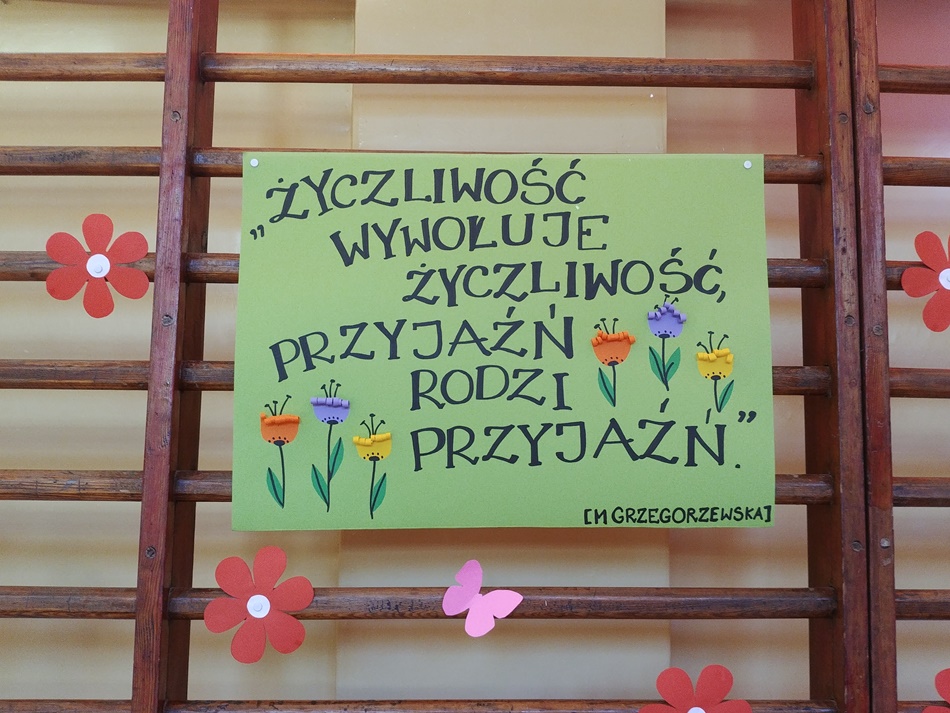 „ŻYCZLIWOŚĆ
WYWOŁUJE
ŻYCZLIWOŚĆ,
PRZYJAŹŃ
RODZI
PRZYJAŹŃ”.
[M GRZEGORZEWSKA]